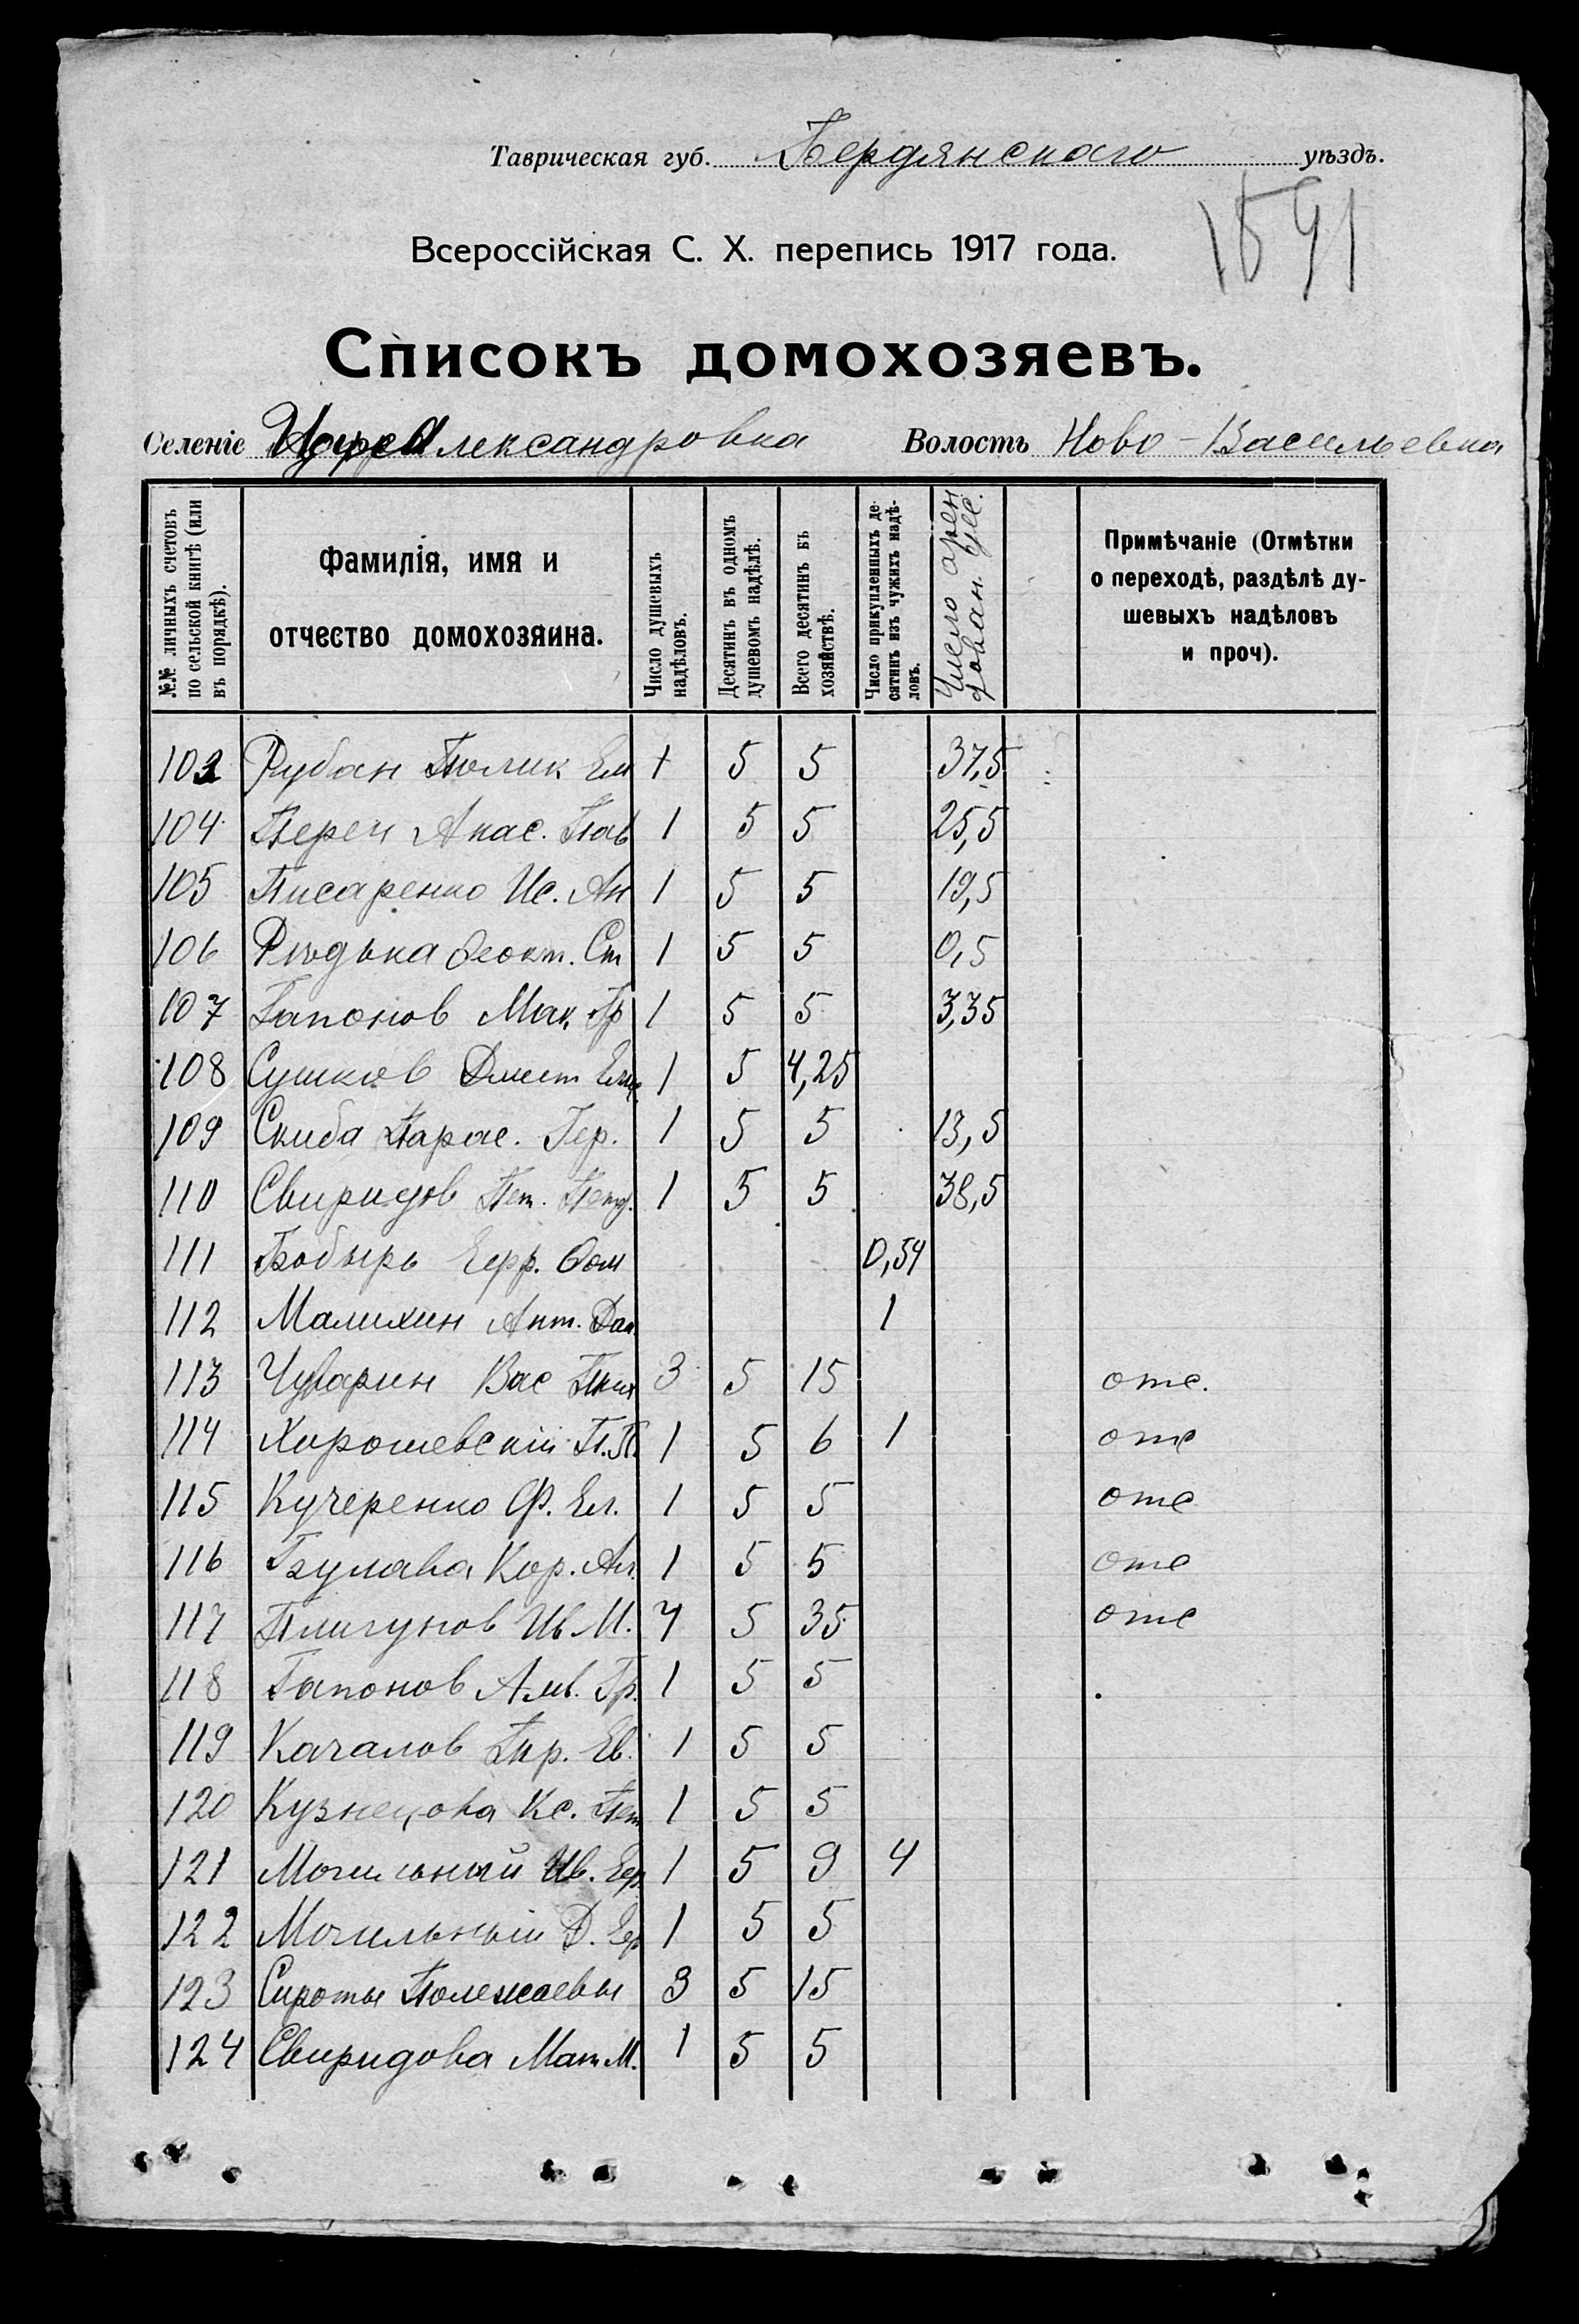 Таврическая губ. Бердянскаго уѣздъ.
1591
Всероссійская С. Х. перепись 1917 года.
Списокъ домохозяевъ.
Селеніе Александровка Волость Ново-Васильевка
№№ личныхъ счетовъ по сельской книгѣ (или въ порядкѣ). Фамилія, имя и отчество домохозяина. Число душевыхъ надѣловъ. Десятинъ въ одномъ душевомъ надѣлѣ. Всего десятинъ въ хозяйствѣ. Число прикупленныхъ десятинъ изъ чужихъ надѣловъ. Число арендован. дес. Примѣчаніе (Отмѣтки о переходѣ, раздѣлѣ душевыхъ надѣловъ и проч).
103 Рубан Ем 1 5 5 37,5
104 Переч Ак 1 5 5 25,5
105 Писаренко Ис. Ан 1 5 5 19,5
106 Рѣдька Феокт. Ст 1 5 5 0,5
107 Гапонов Мак. Гр 1 5 5 3,35
108 Сушков Дмит 1 5 4,25
109 Скиба Парас. Гер. 1 5 5 13,5
110 Свиридов Пет. 1 5 5 38,5
111 Бобырь Ефр. Фом 0,54
112 Малихин Ант. Дан 1
113 Чуварин Вас Тих 3 5 15 отс.
114 Хорошевскій П. П. 1 5 6 1 отс
115 Кучеренко Ф. Ел. 1 5 5 отс
116 Булава Кор. Ал. 1 5 5 отс
117 Плигунов Ив М. 7 5 35 отс
118 Гапонов Амв. Гр. 1 5 5
119 Качалов Пр. Ев. 1 5 5
120 Кузнецова Кс. Пет 1 5 5
121 Могильный Ив. Гер. 1 5 9 4
122 Могильный Д. Гер 1 5 5
123 Сироты Полежаевы 3 5 15
124 Свиридова Мат М. 1 5 5